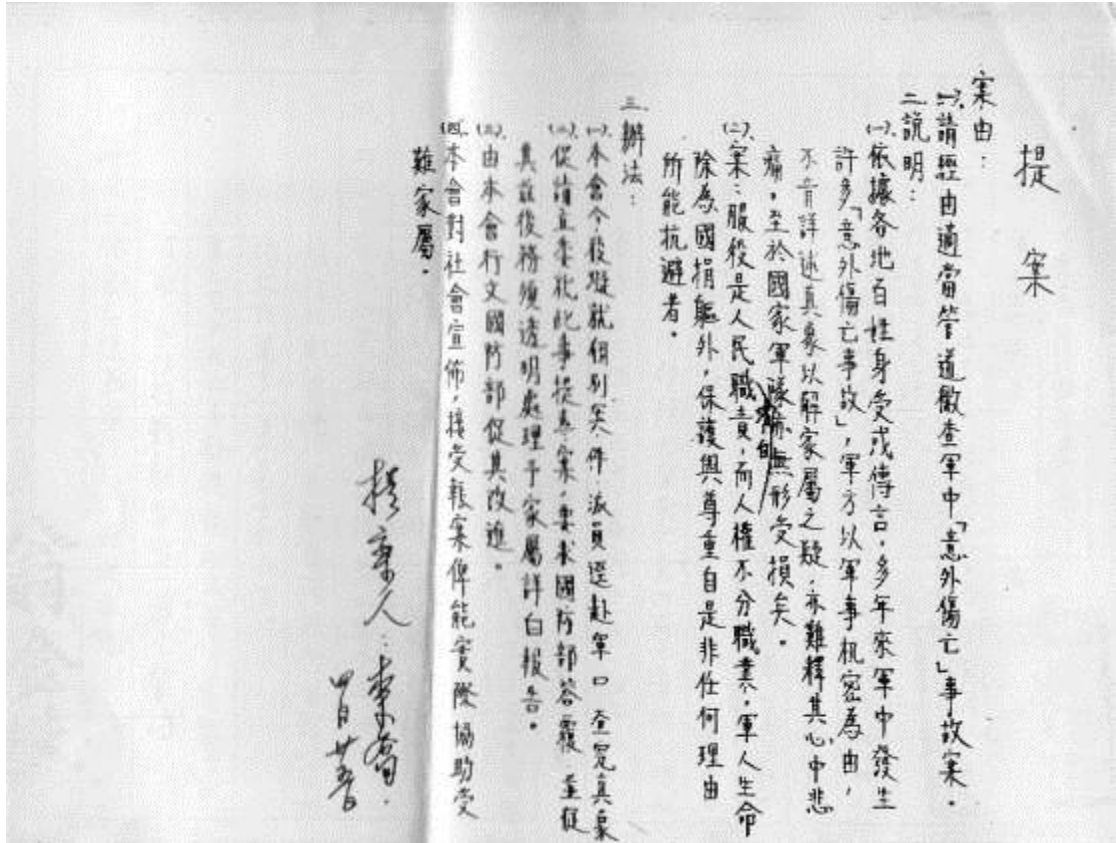 提案
案由:
(一)、請經由適當管道徹查軍中「意外傷亡」事故案。
二、說明:
(一)、依據各地百姓身受或傳言,多年來軍中發生
許多「意外傷亡事故」,軍方以軍事机密為由,
不肯詳述真象以解家屬之疑,亦難釋其心中悲
痛,至於國家軍隊亦無形受損矣。
(二)、案:服役是人民職責,而人權不分職業,軍人生命
除為國捐軀外,保護與尊重自是非任何理由
所能抗避者。
三、辦法:
(一)、本會今後擬就個別案件,派員逕赴軍口查究真象
(二)、促請立委就此事提專案,要求國防部答覆,並促
其改後務須透明處理予家屬詳白報告。
(三)、由本會行文國防部促其改進。
(四)、本會對社會宣佈,接受報案俾能實際協助受
難家屬。
提案人:李喬.
四月廿